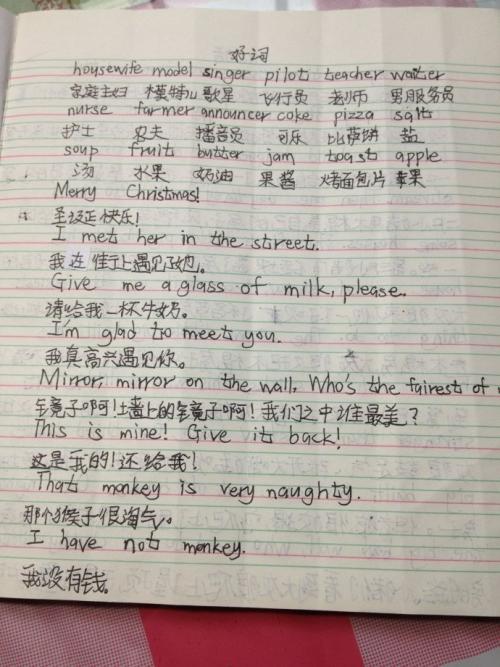 好词
housewife model singer pilot teacher waiter
家庭主妇 模特儿 歌星 飞行员 老师 男服务员
nurse farmer announcer coke pizza salt
护士 农夫 播音员 可乐 比萨饼 盐
soup fruit butter jam toast apple
汤 水果 奶油 果酱 烤面包片 苹果
Merry Christmas!
圣诞快乐!
I met her in the street.
我在街上遇见了她。
Give me a glass of milk, please.
请给我一杯牛奶。
I'm glad to meet you.
我真高兴遇见你。
Mirror, mirror on the wall, Who's the fairest of
镜子啊!墙上的镜子啊!我们之中谁最美?
This is mine! Give it back!
这是我的!还给我!
That monkey is very naughty.
那个猴子很淘气。
I have not monkey.
我没有钱。